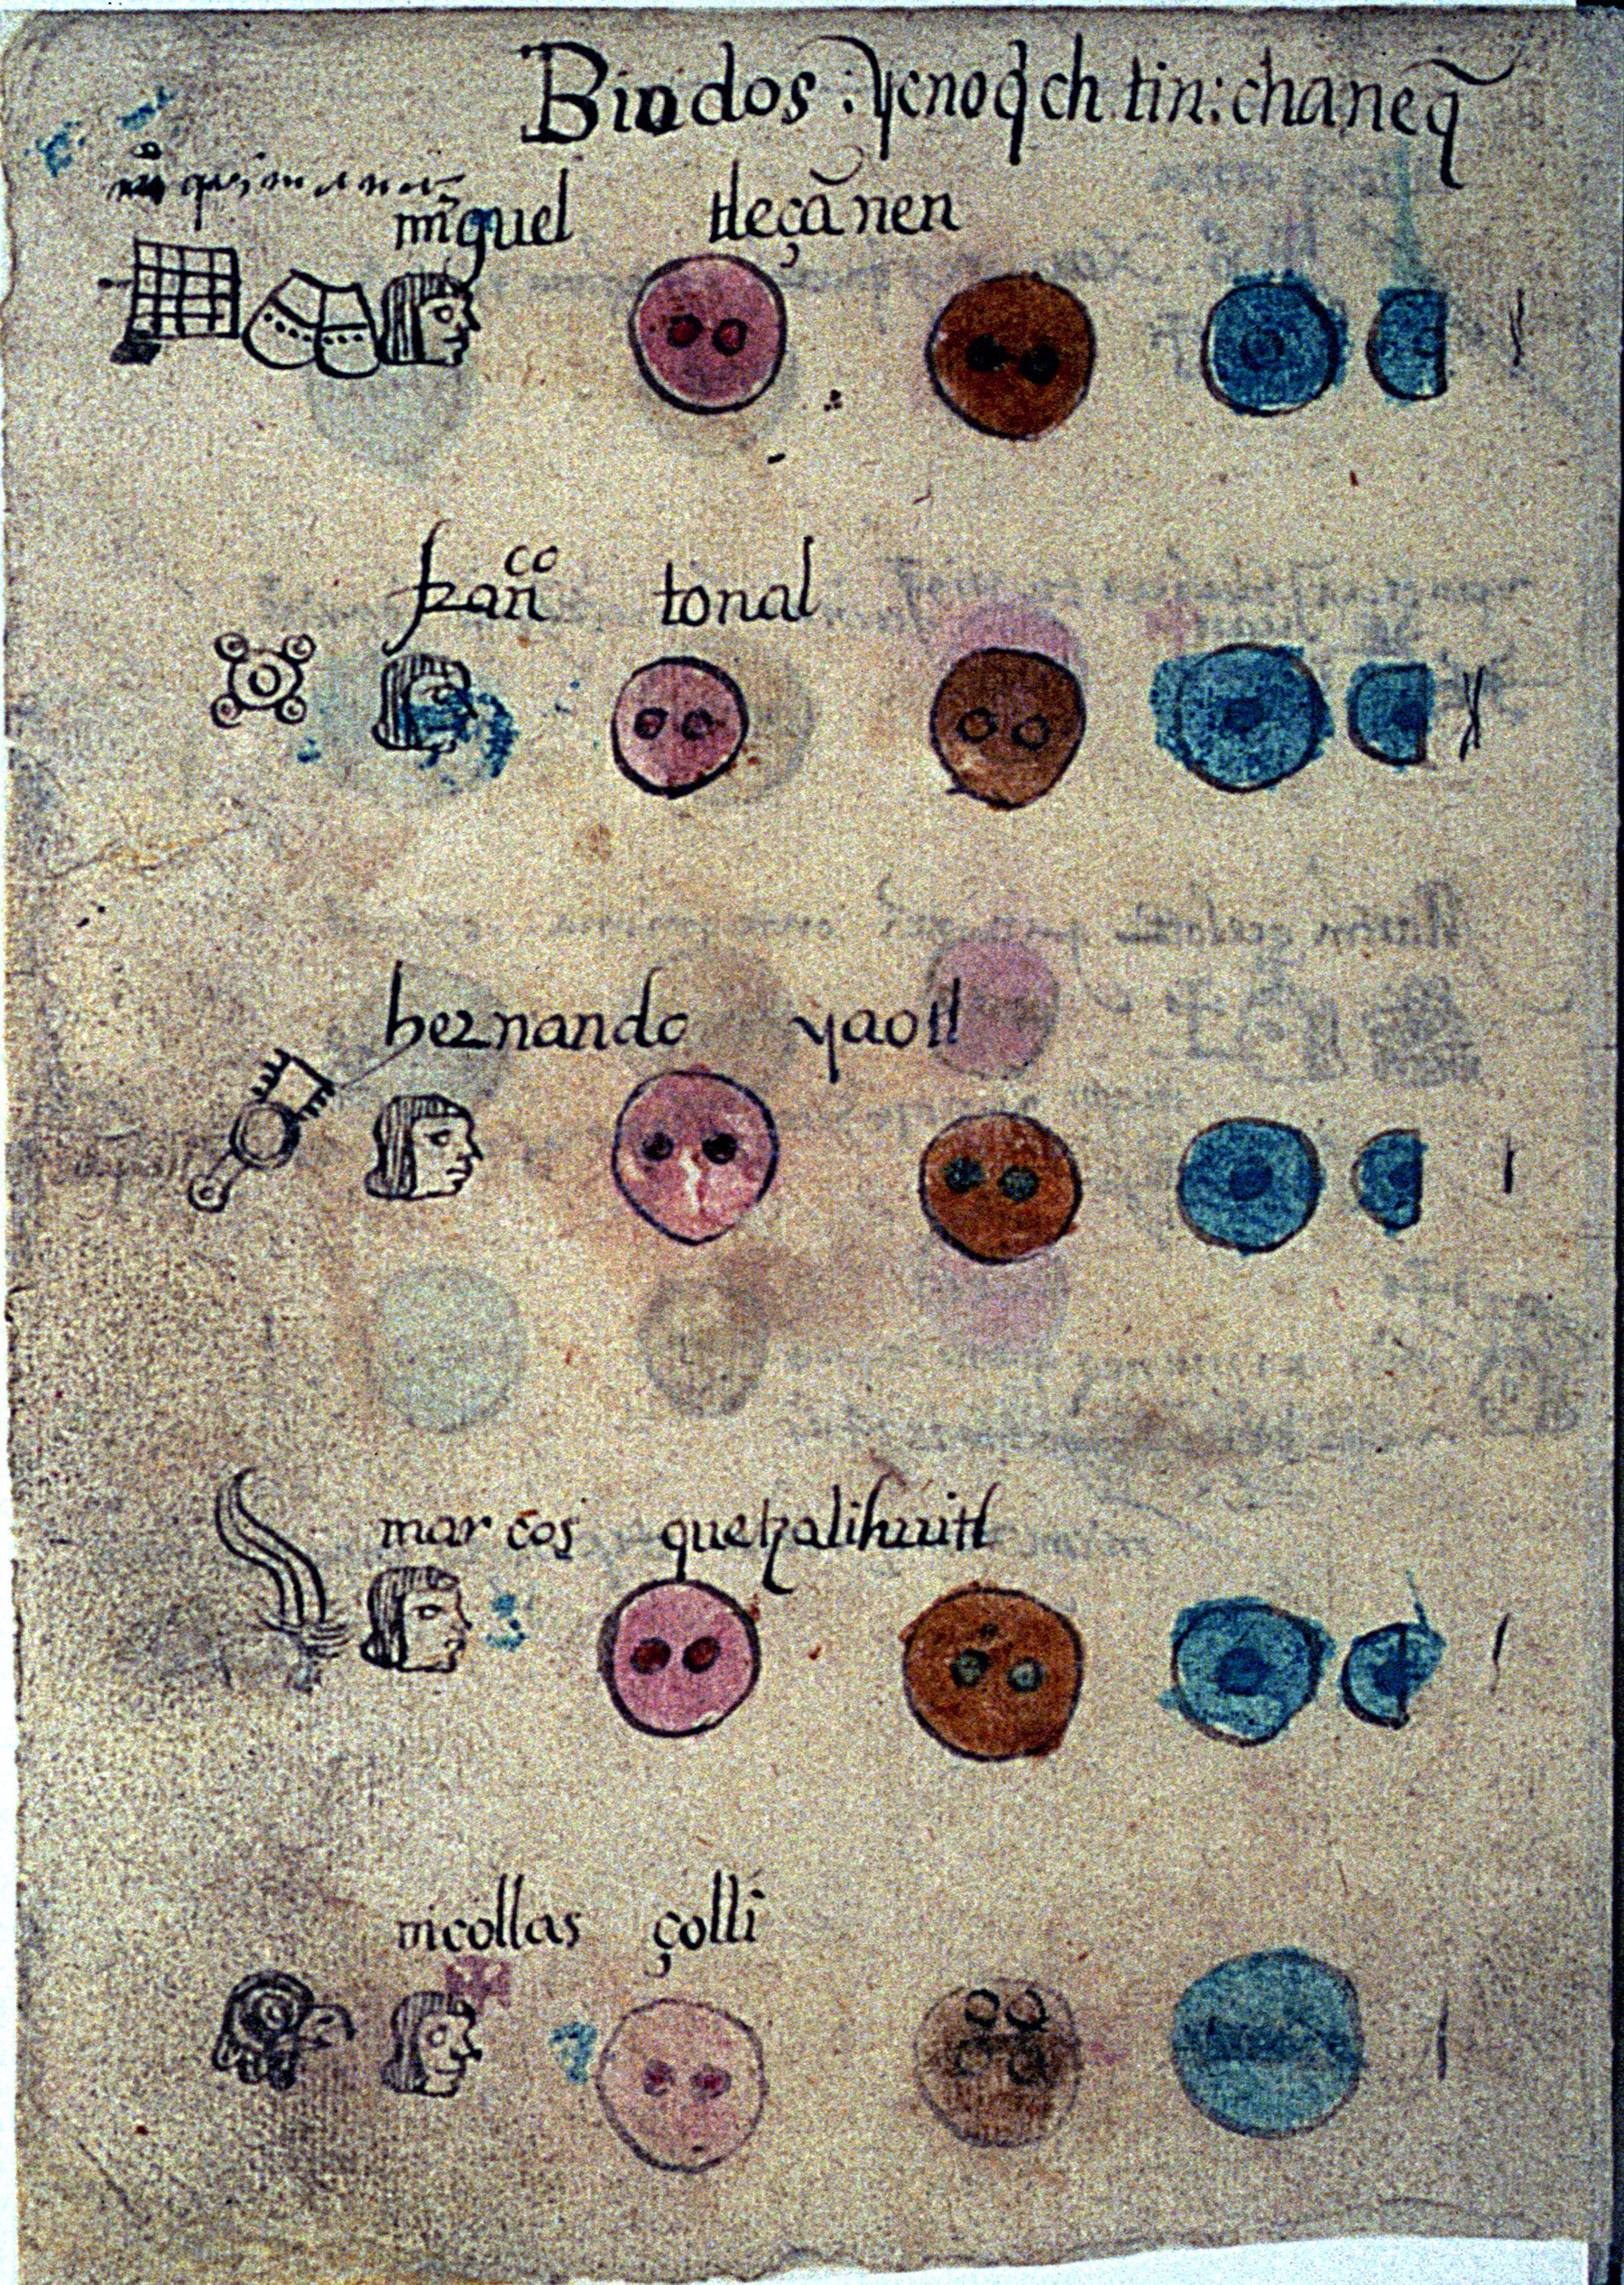 Biudos : ycnoq̄ch tin : chaneq̄
miguel tleçānen
franco tonal
hernando yaotl
marcos quetzalihuitl
nicollas çolli